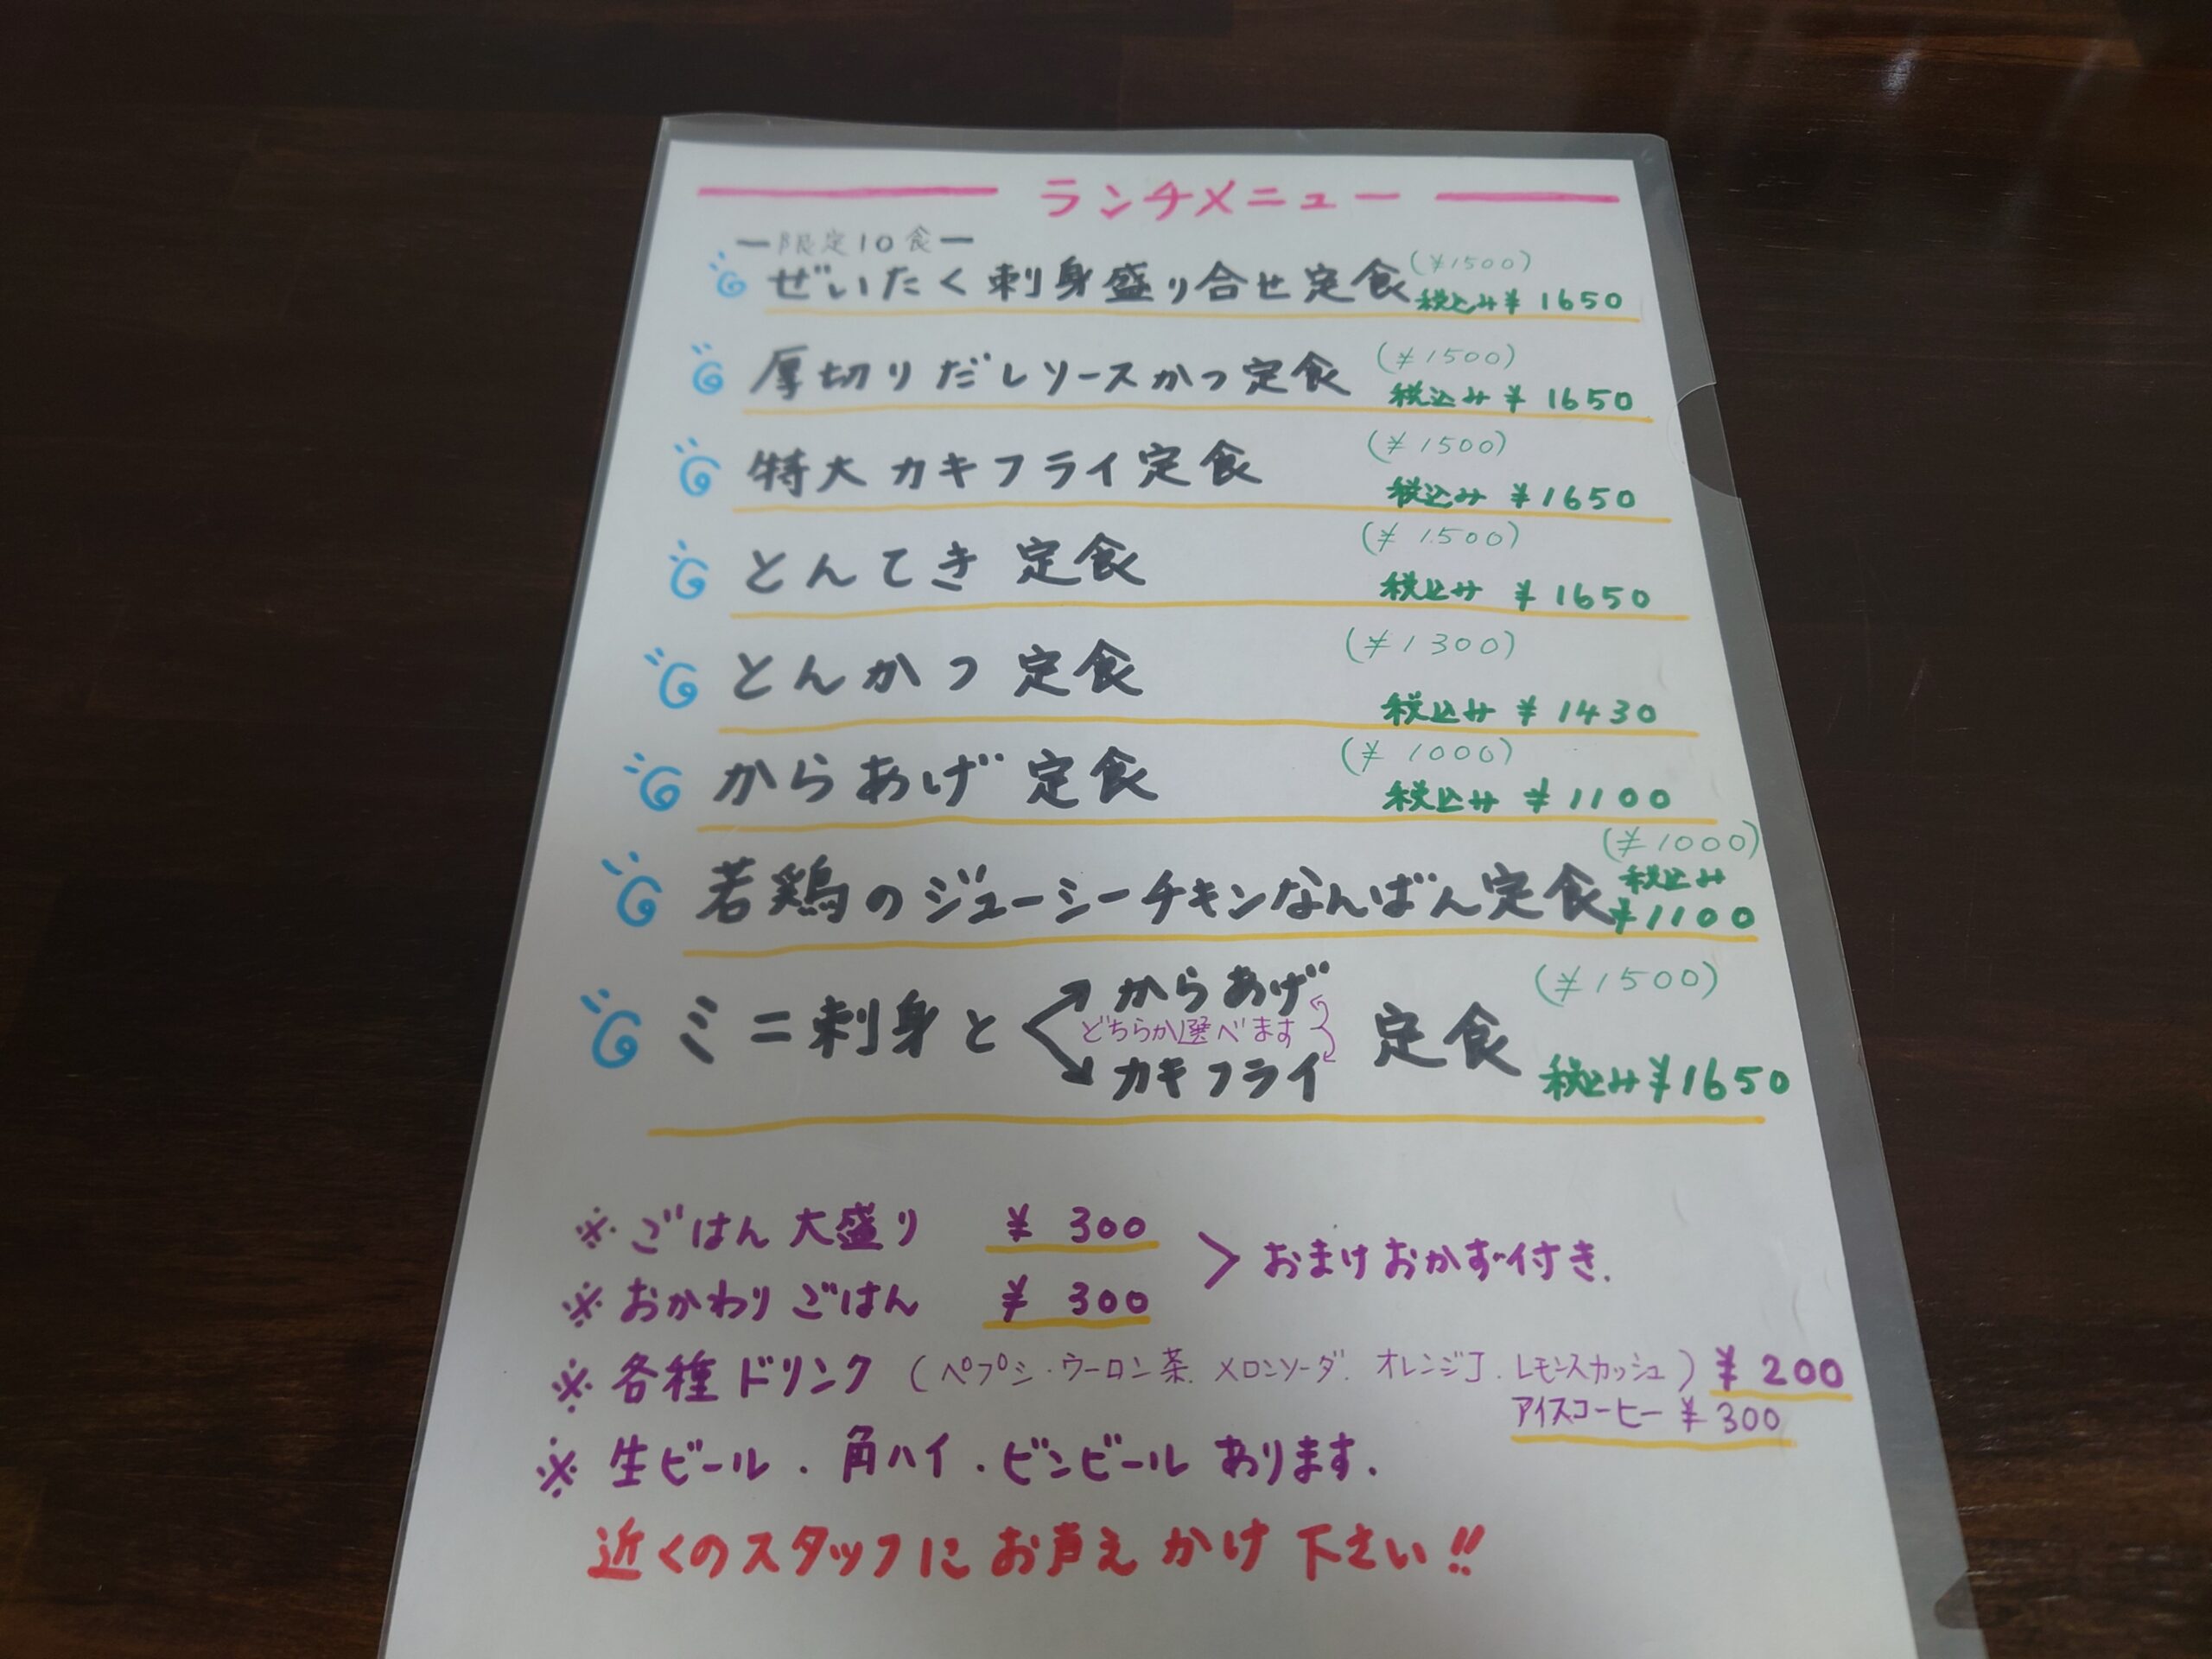 ランチメニュー
ー限定10食ー
ぜいたく刺身盛り合せ定食 (¥1500)
税込み¥1650
厚切りだしソースかつ定食 (¥1500)
税込み¥1650
特大カキフライ定食 (¥1500)
税込み¥1650
とんてき定食 (¥1500)
税込み¥1650
とんかつ定食 (¥1300)
税込み¥1430
からあげ定食 (¥1000)
税込み¥1100
若鶏のジューシーチキンなんばん定食 (¥1000)
税込み
¥1100
ミニ刺身と からあげ 定食 (¥1500)
どちらか選べます
カキフライ
税込み¥1650
※ごはん大盛り ¥300
※おかわりごはん ¥300
>おまけおかず付き.
※各種ドリンク (ペプシ・ウーロン茶.メロンソーダ.オレンジJ.レモンスカッシュ) ¥200
アイスコーヒー ¥300
※生ビール.角ハイ.ビンビールあります.
近くのスタッフにお声えかけ下さい!!